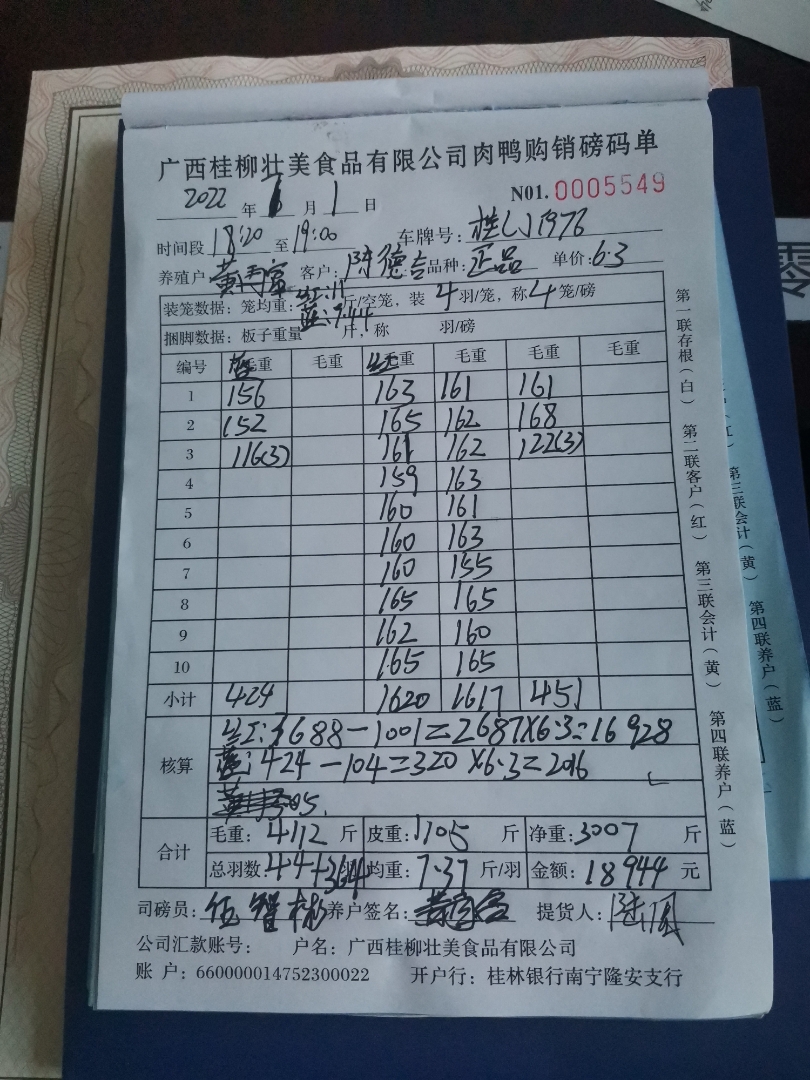 广西桂柳壮美食品有限公司肉鸭购销磅码单
2022 年 6 月 1 日 N01. 0005549
时间段 18:20 至 19:00 车牌号: 桂 J1976
养殖户 黄 富 客户: 陈德吉 品种: 正品 单价: 6.3
装笼数据: 笼均重: 红:11 斤/空笼, 装 4 羽/笼, 称 4 笼/磅
蓝:7.44
捆脚数据: 板子重量 斤, 称 羽/磅
编号 蓝 毛重 毛重 红 毛重 毛重 毛重 毛重
1 156 163 161 161
2 152 165 162 168
3 116(3) 161 162 122(3)
4 159 163
5 160 161
6 160 163
7 160 155
8 165 165
9 162 160
10 165 165
小计 424 1620 1617 451
核算 红:3688-1001=2687×6.3=16928
蓝:424-104=320×6.3=2016
合计 毛重: 4112 斤 皮重: 1105 斤 净重: 3007 斤
总羽数 44+364 均重: 7.37 斤/羽 金额: 18944 元
司磅员: 伍智彬 养户签名: 黄 富 提货人: 陆凤
公司汇款账号: 户名: 广西桂柳壮美食品有限公司
账 户: 660000014752300022 开户行: 桂林银行南宁隆安支行
第一联存根(白) 第二联客户(红) 第三联会计(黄) 第四联养户(蓝)
第三联会计(黄) 第四联养户(蓝)
零